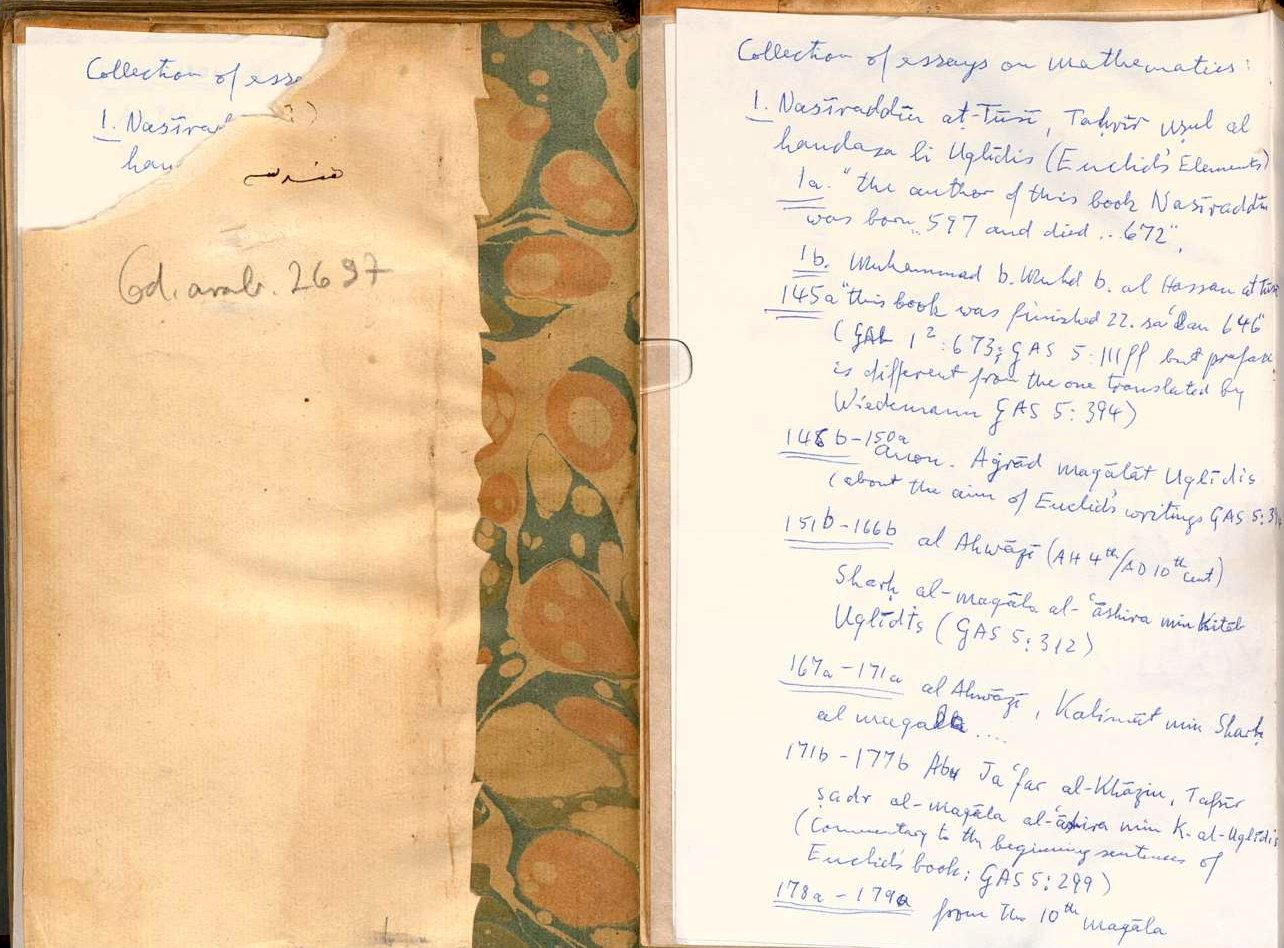 Collection of esse
1. Nasīrad
han
هندسه
Cod. arab. 2697
Collection of essays on mathematics:
1. Nasīraddīn aṭ-Tūsī, Taḥrīr uṣul al
handasa li Uqlīdis (Euclid's Elements)
1a. "the author of this book Nasīraddīn
was born .. 597 and died .. 672".
1b. Muhammad b. Muhd b. al Hassan at Tusi
145a "this book was finished 22. sa'ban 646"
(GAL 1²: 673; GAS 5: 111ff but preface
is different from the one translated by
Wiedemann GAS 5: 394)
148b-150a
anon. Aġrāḍ maqālāt Uqlīdis
(about the aim of Euclid's writings GAS 5:
151b-166b al Ahwāzī (AH 4th/AD 10th cent)
Sharḥ al-maqāla al-ʿāshira min Kitāb
Uqlīdis (GAS 5: 312)
167a-171a al Ahwāzī, Kalimāt min Sharḥ
al maqala ....
171b-177b Abu Jaʿfar al-Khāzin, Tafsīr
ṣadr al-maqāla al-ʿāshira min K. al-Uqlīdis
(Commentary to the beginning sentences of
Euclid's book; GAS 5: 299)
178a-179a from the 10th maqāla